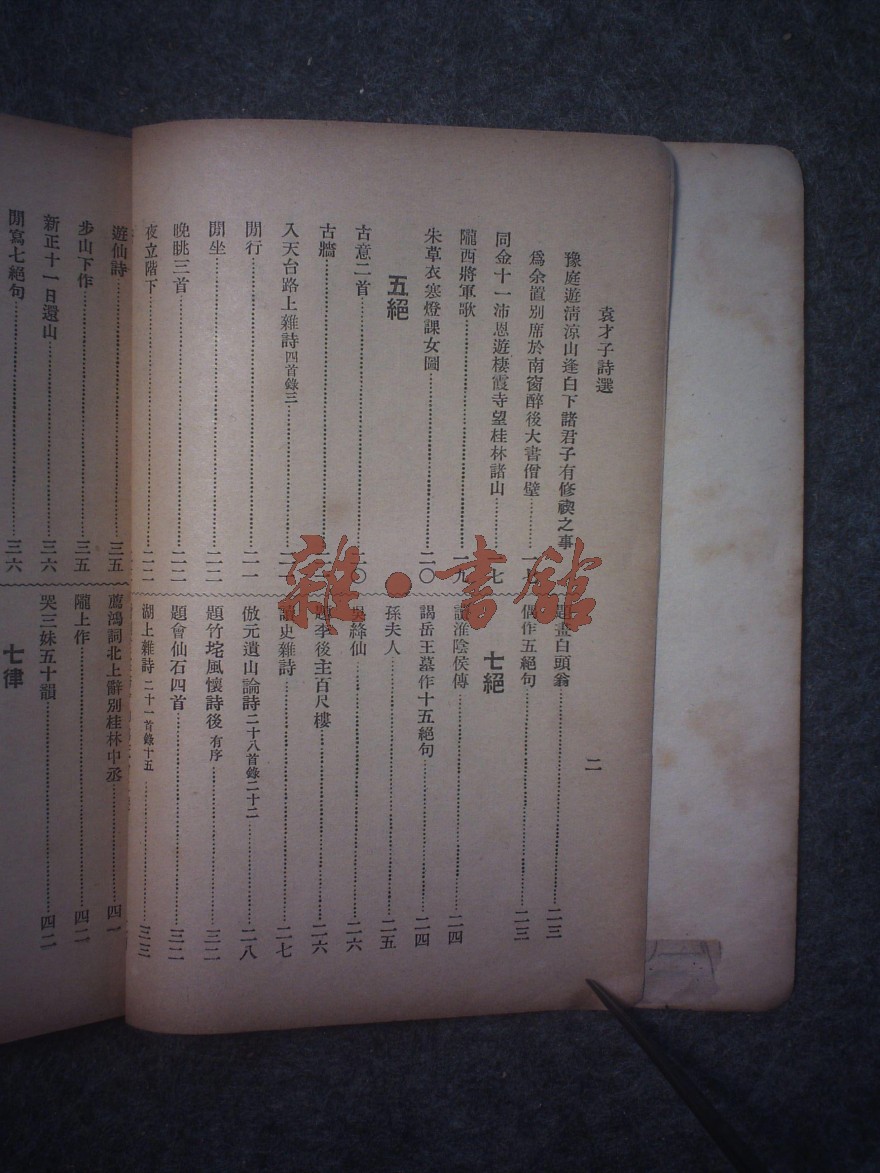 袁才子詩選
豫庭遊清涼山逢白下諸君子有修禊之事
爲余置別席於南窗醉後大書僧壁……一七
同金十一沛恩遊棲霞寺望桂林諸山……一七
隴西將軍歌……一九
朱草衣寒燈課女圖……二〇
五絕
古意二首……二〇
古牆……
入天台路上雜詩四首錄三……
閒行……二一
閒坐……二二
晚眺三首……二二
夜立階下……二二
二
白頭翁……二三
偶作五絕句……二三
七絕
讀淮陰侯傳……二四
謁岳王墓作十五絕句……二四
孫夫人……二五
吳絳仙……二六
題李後主百尺樓……二六
讀史雜詩……二七
倣元遺山論詩二十八首錄二十二……二八
題竹垞風懷詩後 有序……三二
題會仙石四首……三二
湖上雜詩 二十一首錄十五……三三
遊仙詩……三五
步山下作……三五
新正十一日還山……三六
閒寫七絕句……三六
薦鴻詞北上辭別桂林中丞……四一
隴上作……四二
哭三妹五十韻……四二
七律
雜·書舘